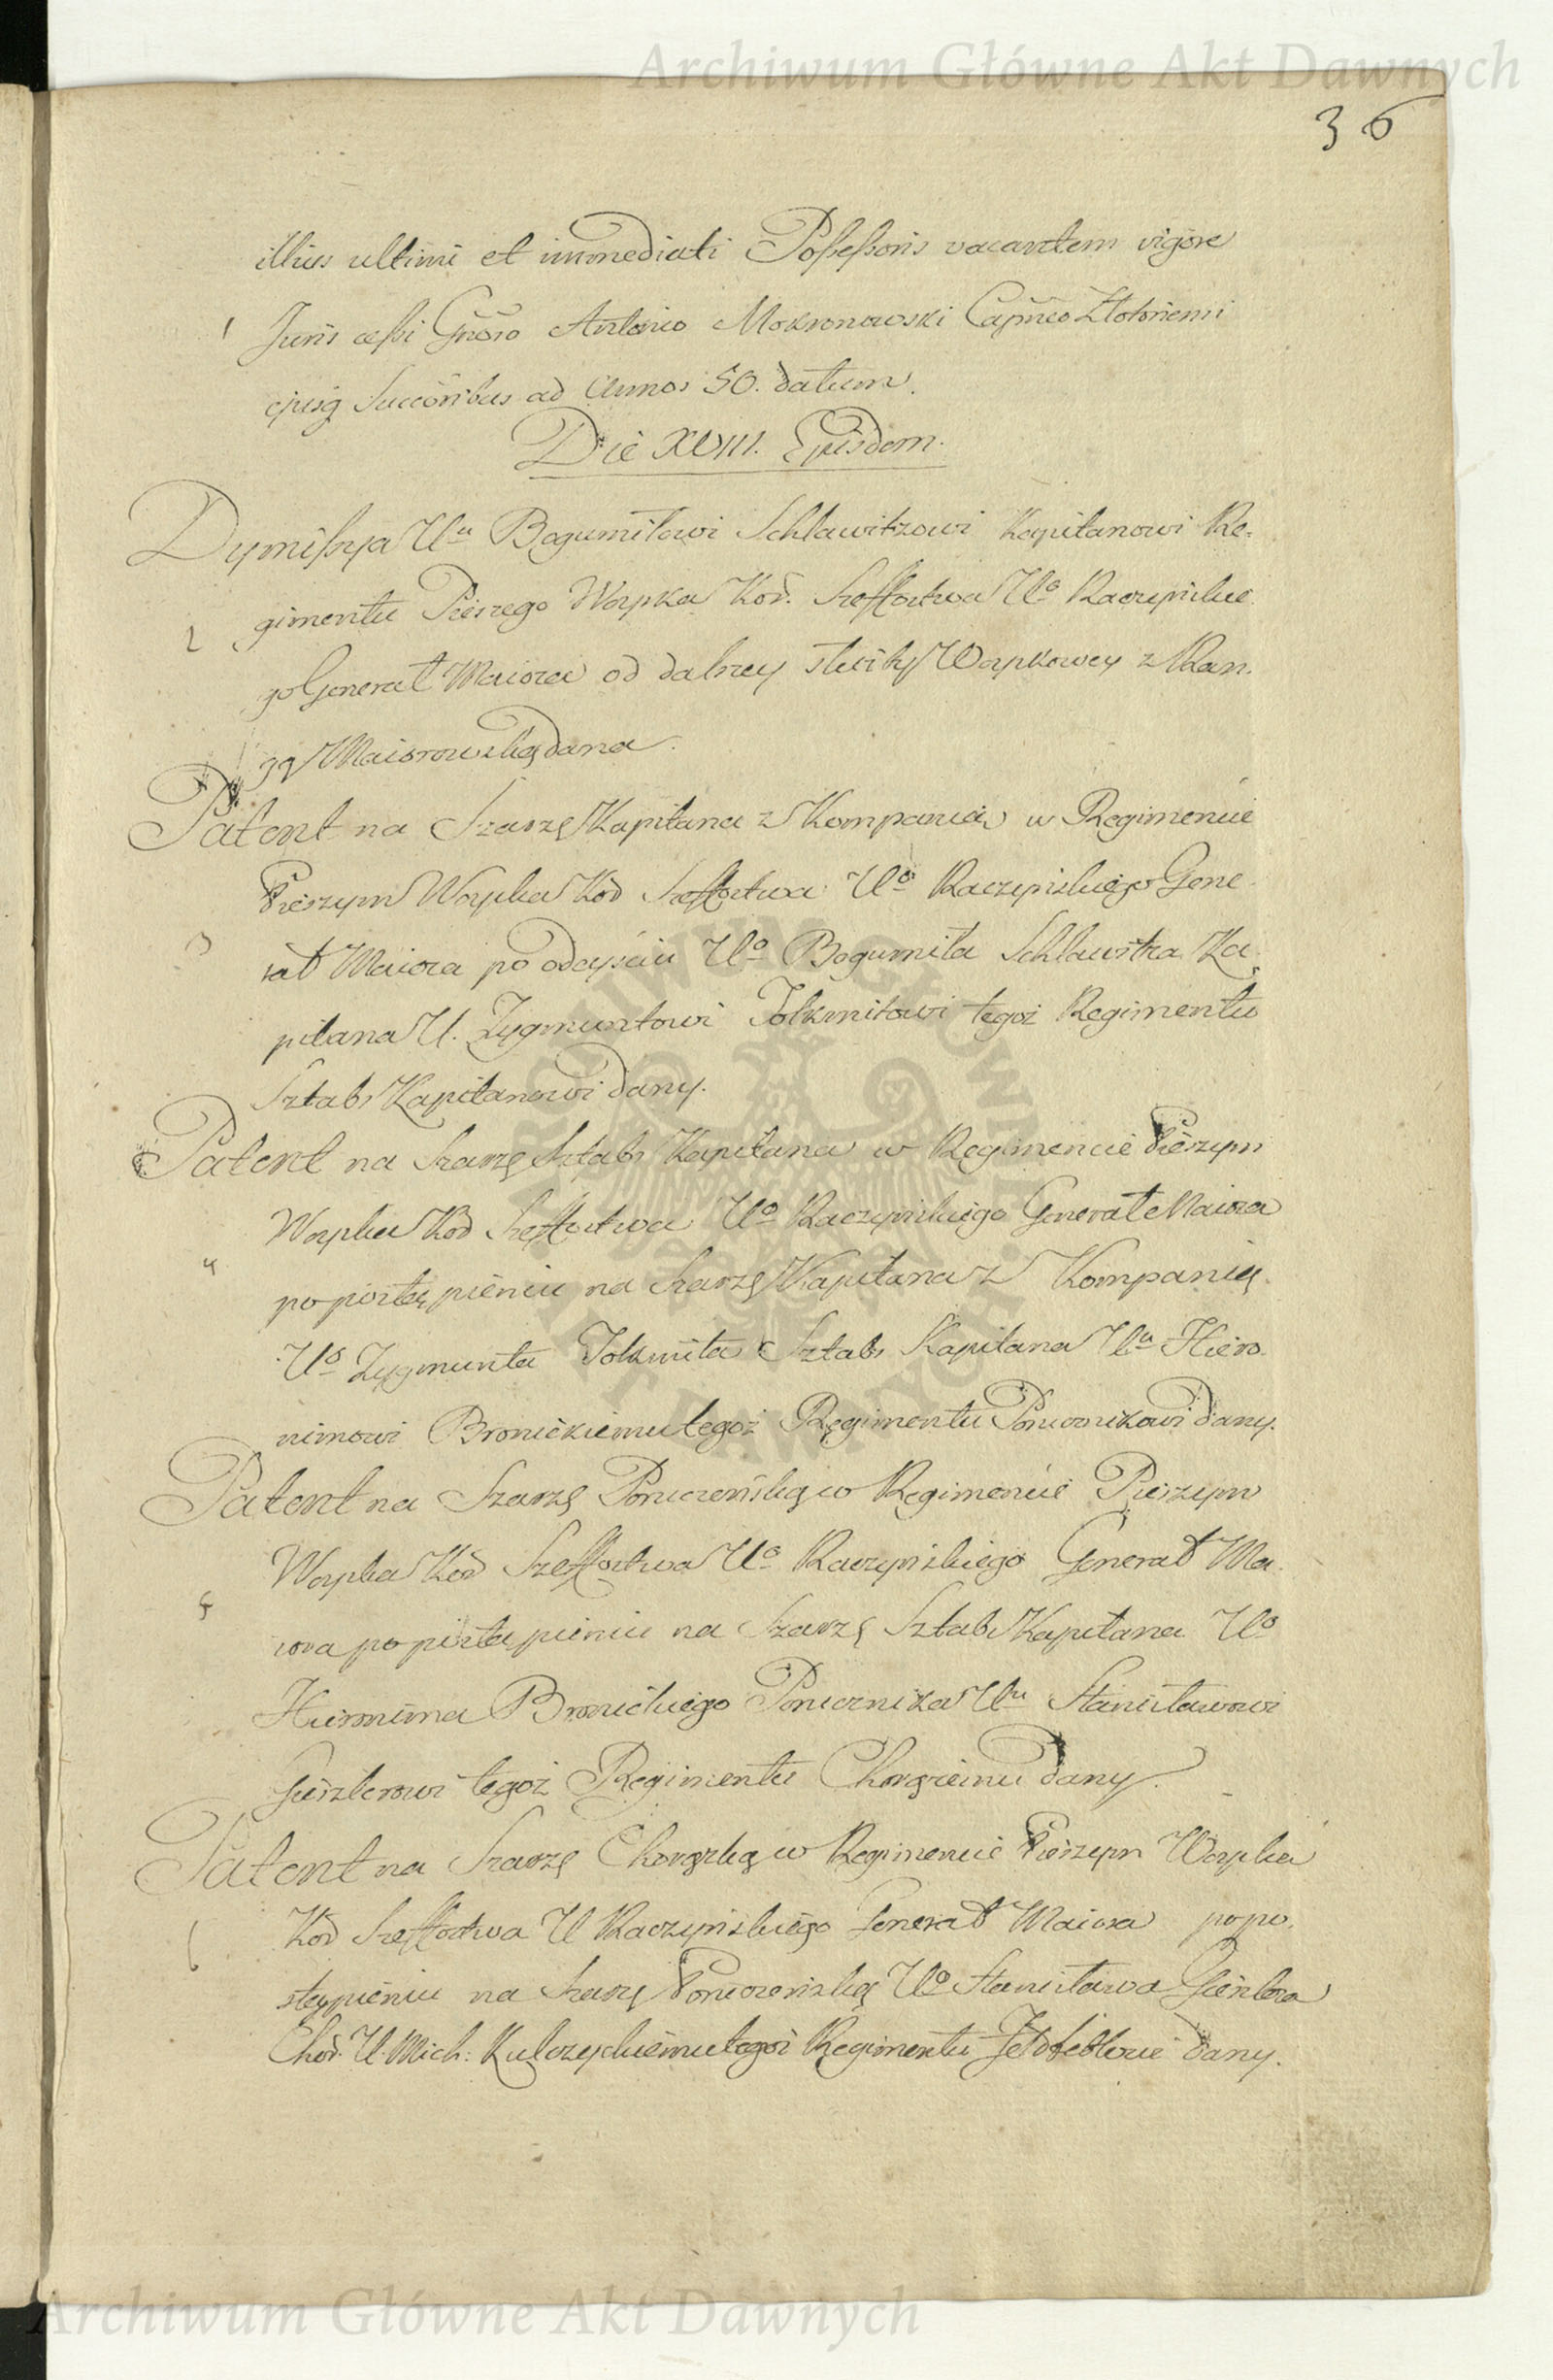 Archiwum Główne Akt Dawnych
36
illius ultimi et immediati Possessoris vacantem vigore
1 Juris cessi Gnoso Antonio Mokronowski Capneo
ejusq Succoribus ad Annos 50. datum.
Die XVIII. Ejusdem.
Dymissya Ur Bogumiłowi Schlawitzowi Kapitanowi Re-
2 gimentu Pieszego Woyska Kor. Szeffostwa Uo Raczynskie
go Generał Maiora od dalszey służby Woyskowey z Ran-
gą Maiorowską dana.
Patent na Szarzę Kapitana z Kompanią w Regimencie
Pieszym Woyska Kor Szeffostwa Uo Raczynskiego Gene-
3 rał Maiora po odeyściu Uo Bogumiła Schlawitza Ka-
pitana U. Zygmuntowi Tolkmitowi tegoż Regimentu
Sztabs Kapitanowi dany.
Patent na Szarzę Sztabs Kapitana w Regimencie Pieszym
Woyska Kor Szeffostwa Uo Raczynskiego Generał Maiora
4 po postąpieniu na Szarzę Kapitana z Kompanią
Uo Zygmunta Tolkmita Sztabs Kapitana Uu Hiero-
nimowi Bronickiemu tegoż Regimentu Porucznikowi dany.
Patent na Szarzę Poruczeńską w Regimencie Pieszym
Woyska Kor Szeffostwa Uo Raczynskiego Generał Ma-
5 iora po postąpieniu na Szarzę Sztabs Kapitana Uo
Hieronima Bronickiego Porucznika Uu Stanisławowi
Giszlerowi tegoż Regimentu Chorążemu dany.
Patent na Szarzę Chorążską w Regimencie Pieszym Woyska
6 Kor Szeffostwa U Raczynskiego Generał Maiora po po-
stąpieniu na Szarzę Poruczeńską Uo Stanisława Giszlera
Chor. U. Mich: Kulczyckiemu tegoż Regimentu Feldfeblowi dany.
ARCHIWUM GŁÓWNE AKT DAWNYCH
Archiwum Główne Akt Dawnych